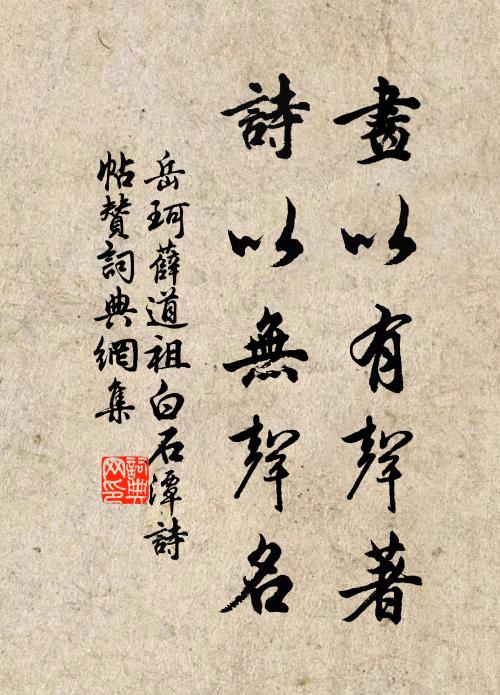 畫以有聲著
詩以無聲名
岳珂薛道祖白石潭詩
帖贊詞典網集
詞典网印